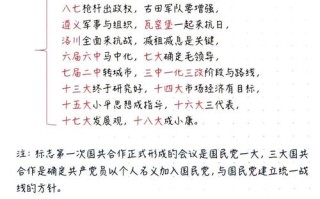 八七枪杆出政权，古田军队要增强，
遵义军事与组织，瓦窑堡一起来抗日，
洛川全面来抗战，减租减息是关键，
六届六中马中化，七大确定毛领导，
七届二中转城市，三中一化三改阶段与路线，
十三大终于研究好，十四大市场经济有目标，
十五大小平思想成指导，十六大三代表，
十七大发展观，十八大成小康。
注：标志第一次国共合作正式形成的会议是国民党一大，三大国共
合作是确定共产党员以个人名义加入国民党，与国民党建立统一战
线的方针。